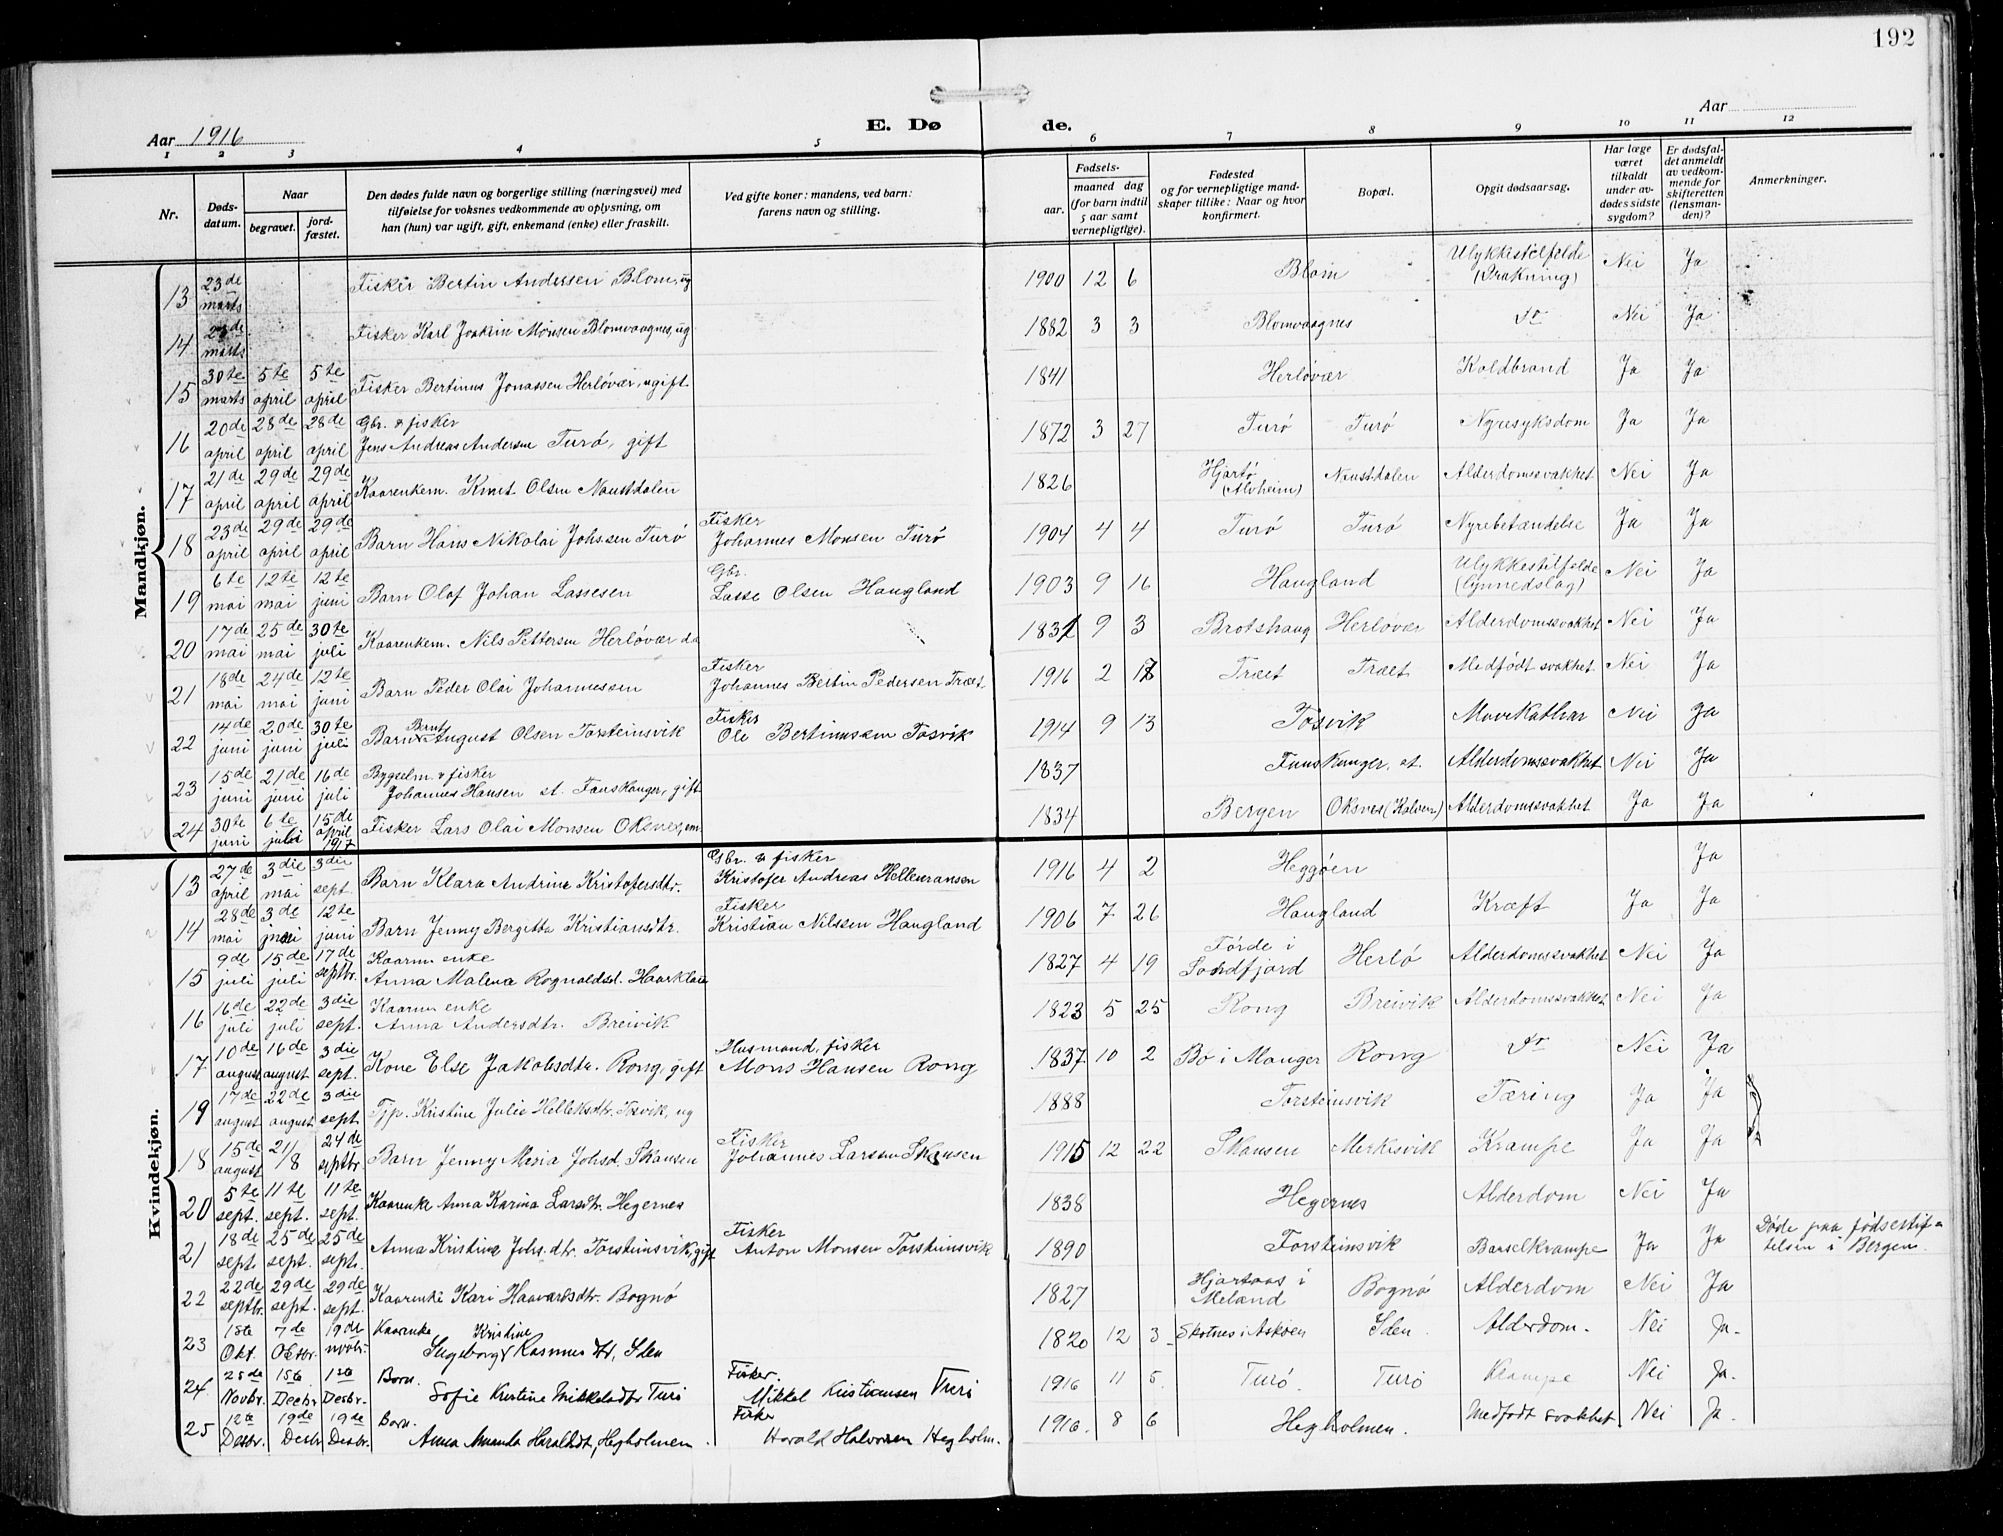 192
Aar 1916
E. Dø de.
Aar
1 2 3 4 5 6 7 8 9 10 11 12
Nr.
Døds-datum.
Naar
begravet.
jord-fæstet.
Den dødes fulde navn og borgerlige stilling (næringsvei) med tilføielse for voksnes vedkommende av oplysning, om han (hun) var ugift, gift, enkemand (enke) eller fraskilt.
Ved gifte koner: mandens, ved barn: farens navn og stilling.
Fødsels-
aar.
maaned dag (for barn indtil 5 aar samt vernepligtige).
Fødested og for vernepligtige mand-skaper tillike: Naar og hvor konfirmert.
Bopæl.
Opgit dødsaarsag.
Har læge været tilkaldt under av-dødes sidste sygdom?
Er dødsfal-det anmeldt av vedkom-mende for skifteretten (lensman-den)?
Anmerkninger.
Mandkjøn.
13 23de marts Fisker Bertin Andersen Blom, ug 1900 12 6 Blom Ulykkestilfelde (Drukning) Nei Ja
14 23de marts Fisker Karl Joakim Monsen Blomvaagnes, ug 1882 3 3 Blomvaagnes do Nei Ja
15 30te marts 5te april 5te april Fisker Bertinus Jonassen Herløvær, ugift 1841 Herløvær Koldbrand Ja Ja
16 20de april 28de april 28de april Gbr. & fisker Jens Andreas Andersen Turø, gift 1872 3 27 Turø Turø Nyresyksdom Ja Ja
17 21de april 29de april 29de april Kaarenkem. Knut Olsen Naustdalen 1826 Hjartø (Alvheim) Naustdalen Alderdomssvakhet Nei Ja
18 23de april 29de april 29de april Barn Hans Nikolai Johssen Turø Fisker Johannes Monsen Turø 1904 4 4 Turø Turø Nyrebetændelse Ja Ja
19 6te mai 12te mai 12te juni Barn Olaf Johan Lassesen Gbr. Lasse Olsen Haugland 1903 9 16 Haugland Ulykkestilfelde (Lynnedslag) Nei Ja
20 17de mai 25de mai 30te juli Kaarenkem. Nils Pettersen Herløvær 1831 9 3 Brotshaug Herløvær Alderdomssvakhet Nei Ja
21 18de mai 24de mai 12te juni Barn Peder Olai Johannessen Fisker Johannes Bertin Pedersen Træet. 1916 2 Træet Træet Medfødt svakhet Nei Ja
22 14de juni 20de juni 30te juli Barn Bernt August Olsen Torsteinsvik Fisker Ole Bertinussen Tosvik 1914 9 13 Tosvik Mavekathar Nei Ja
23 15de juni 21de juni 16de juli Bygselm. & fisker Johannes Hansen st. Fauskanger, gift 1837 Fauskanger, st. Alderdomssvakhet Nei Ja
24 30te juni 6te juli 15de april 1917 Fisker Lars Olai Monsen Oksnes, em 1834 Bergen Oksnes (Kalven) Alderdomssvakhet Ja Ja
Kvindekjøn.
13 27de april 3die mai 3die sept. Barn Klara Andrine Kristofersdtr. Gbr. & fisker Kristofer Andreas Helleuransen 1916 4 2 Heggøen Ja
14 28de mai 3de juni 12te juni Barn Jenny Bergitta Kristiansdtr. Fisker Kristian Nilssen Haugland 1906 7 26 Haugland Kræft Ja Ja
15 9de juli 15de juli 17de septbr. Kaarm enke Anna Malena Rognaldsd. Haarklau 1827 4 19 Førde i Søndfjord Herlø Alderdomssvakhet Nei Ja
16 16de juli 22de juli 3die sept. Kaarm enke Anna Andersdtr. Breivik 1823 5 25 Rong Breivik Alderdomssvakhet Nei Ja
17 10de august 16de august 3die sept. Kone Else Jakobsdtr. Rong, gift Husmand, fisker Mons Hansen Rong 1837 10 2 Bø i Manger Rong do Nei Ja
19 17de august 22de august 3die sept. Tjp. Kristine Julie Helleksdtr. Tosvik, ug 1888 Torsteinsvik Tæring Ja Ja
18 15de august 21/8 24de septbr Barn Jenny Maria Johsd. Skansen Fisker Johannes Larsen Skansen 1915 12 22 Skansen Merkesvik Krampe Ja Ja
20 5te sept. 11te sept. 11te sept. Kaarenke Anna Karina Larsdtr. Hegernes 1838 Hegernes Alderdom Nei Ja
21 18de sept 25de sept. 25de sept. Anna Kristine Johs.dtr. Torsteinsvik, gift Fisker Anton Monsen Torsteinsvik 1890 Torsteinsvik Barselkrampe Ja Ja Døde paa fødsestif-telsen i Bergen.
22 22de septbr. 29de sept. 29de sept. Kaarenke Kari Haavardsdtr. Bognø 1827 Hjartaas i Meland Bognø Alderdom Nei Ja
23 1ste Okt. 7de Oktbr. 19de novbr. Kaarenke Ingeborg Kristine Rasmusdtr, Iden 1820 12 3 Skotnes i Askøen Iden Alderdom. Nei Ja.
24. 25de Novbr. 1ste Decbr 1ste Desbr. Barn. Sofie Kristine Mikkelsdtr Turø Fisker. Mikkel Kristiansen Turø 1916 11 5. Turø. Turø Krampe Nei Ja.
25 12te Desbr. 19de Desbr 19de Desbr. Barn. Anna Amanda Haraldsdt, Hegholmen. Fisker Harald Halvorsen Hegholm. 1916. 8 6 Hegholmen. Medfødt svakhet Nei Ja.